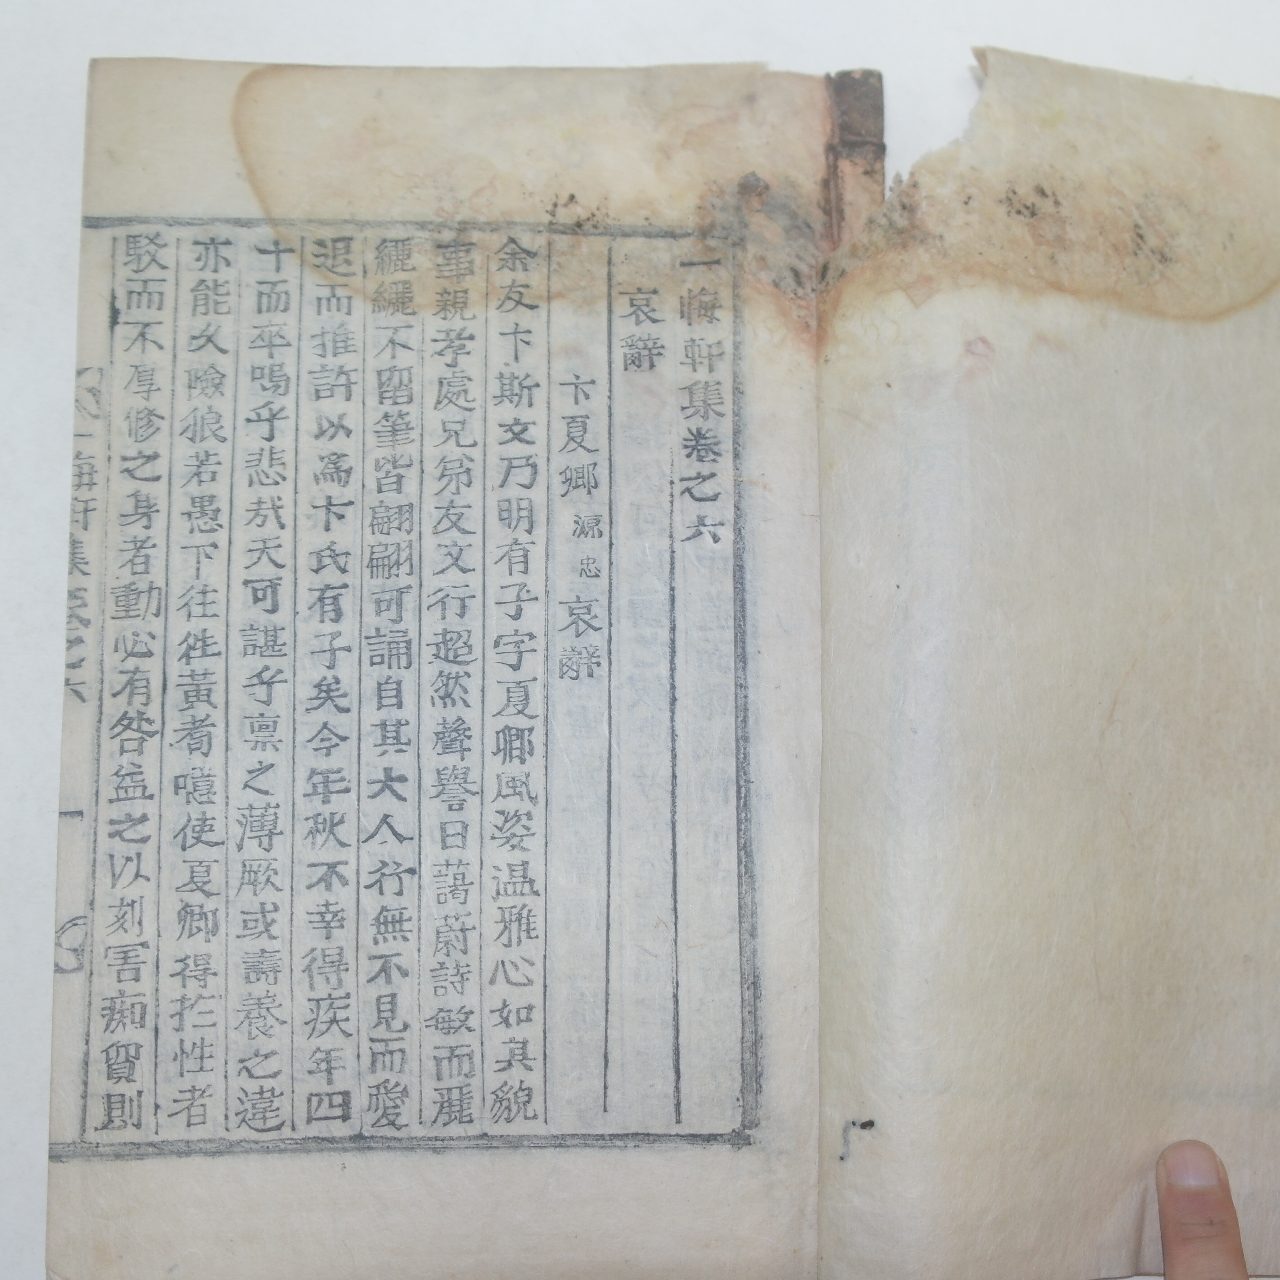 一悔軒集卷之六
哀辭
卞夏卿源忠哀辭
余友卞斯文乃明有子字夏卿風姿温雅心如其貌
事親孝處兄弟友文行超然聲譽日藹蔚詩敏而麗
纚纚不留筆皆翩翩可誦自其大人行無不見而愛
退而推許以爲卞氏有子矣今年秋不幸得疾年四
十而卒嗚乎悲㢤天可諶乎禀之薄厥或壽養之違
亦能久險狼若愚下往徃黃耈噫使夏卿得扵性者
駁而不厚修之身者動必有咎益之以刻害痴貿則
悔軒集卷之六
一